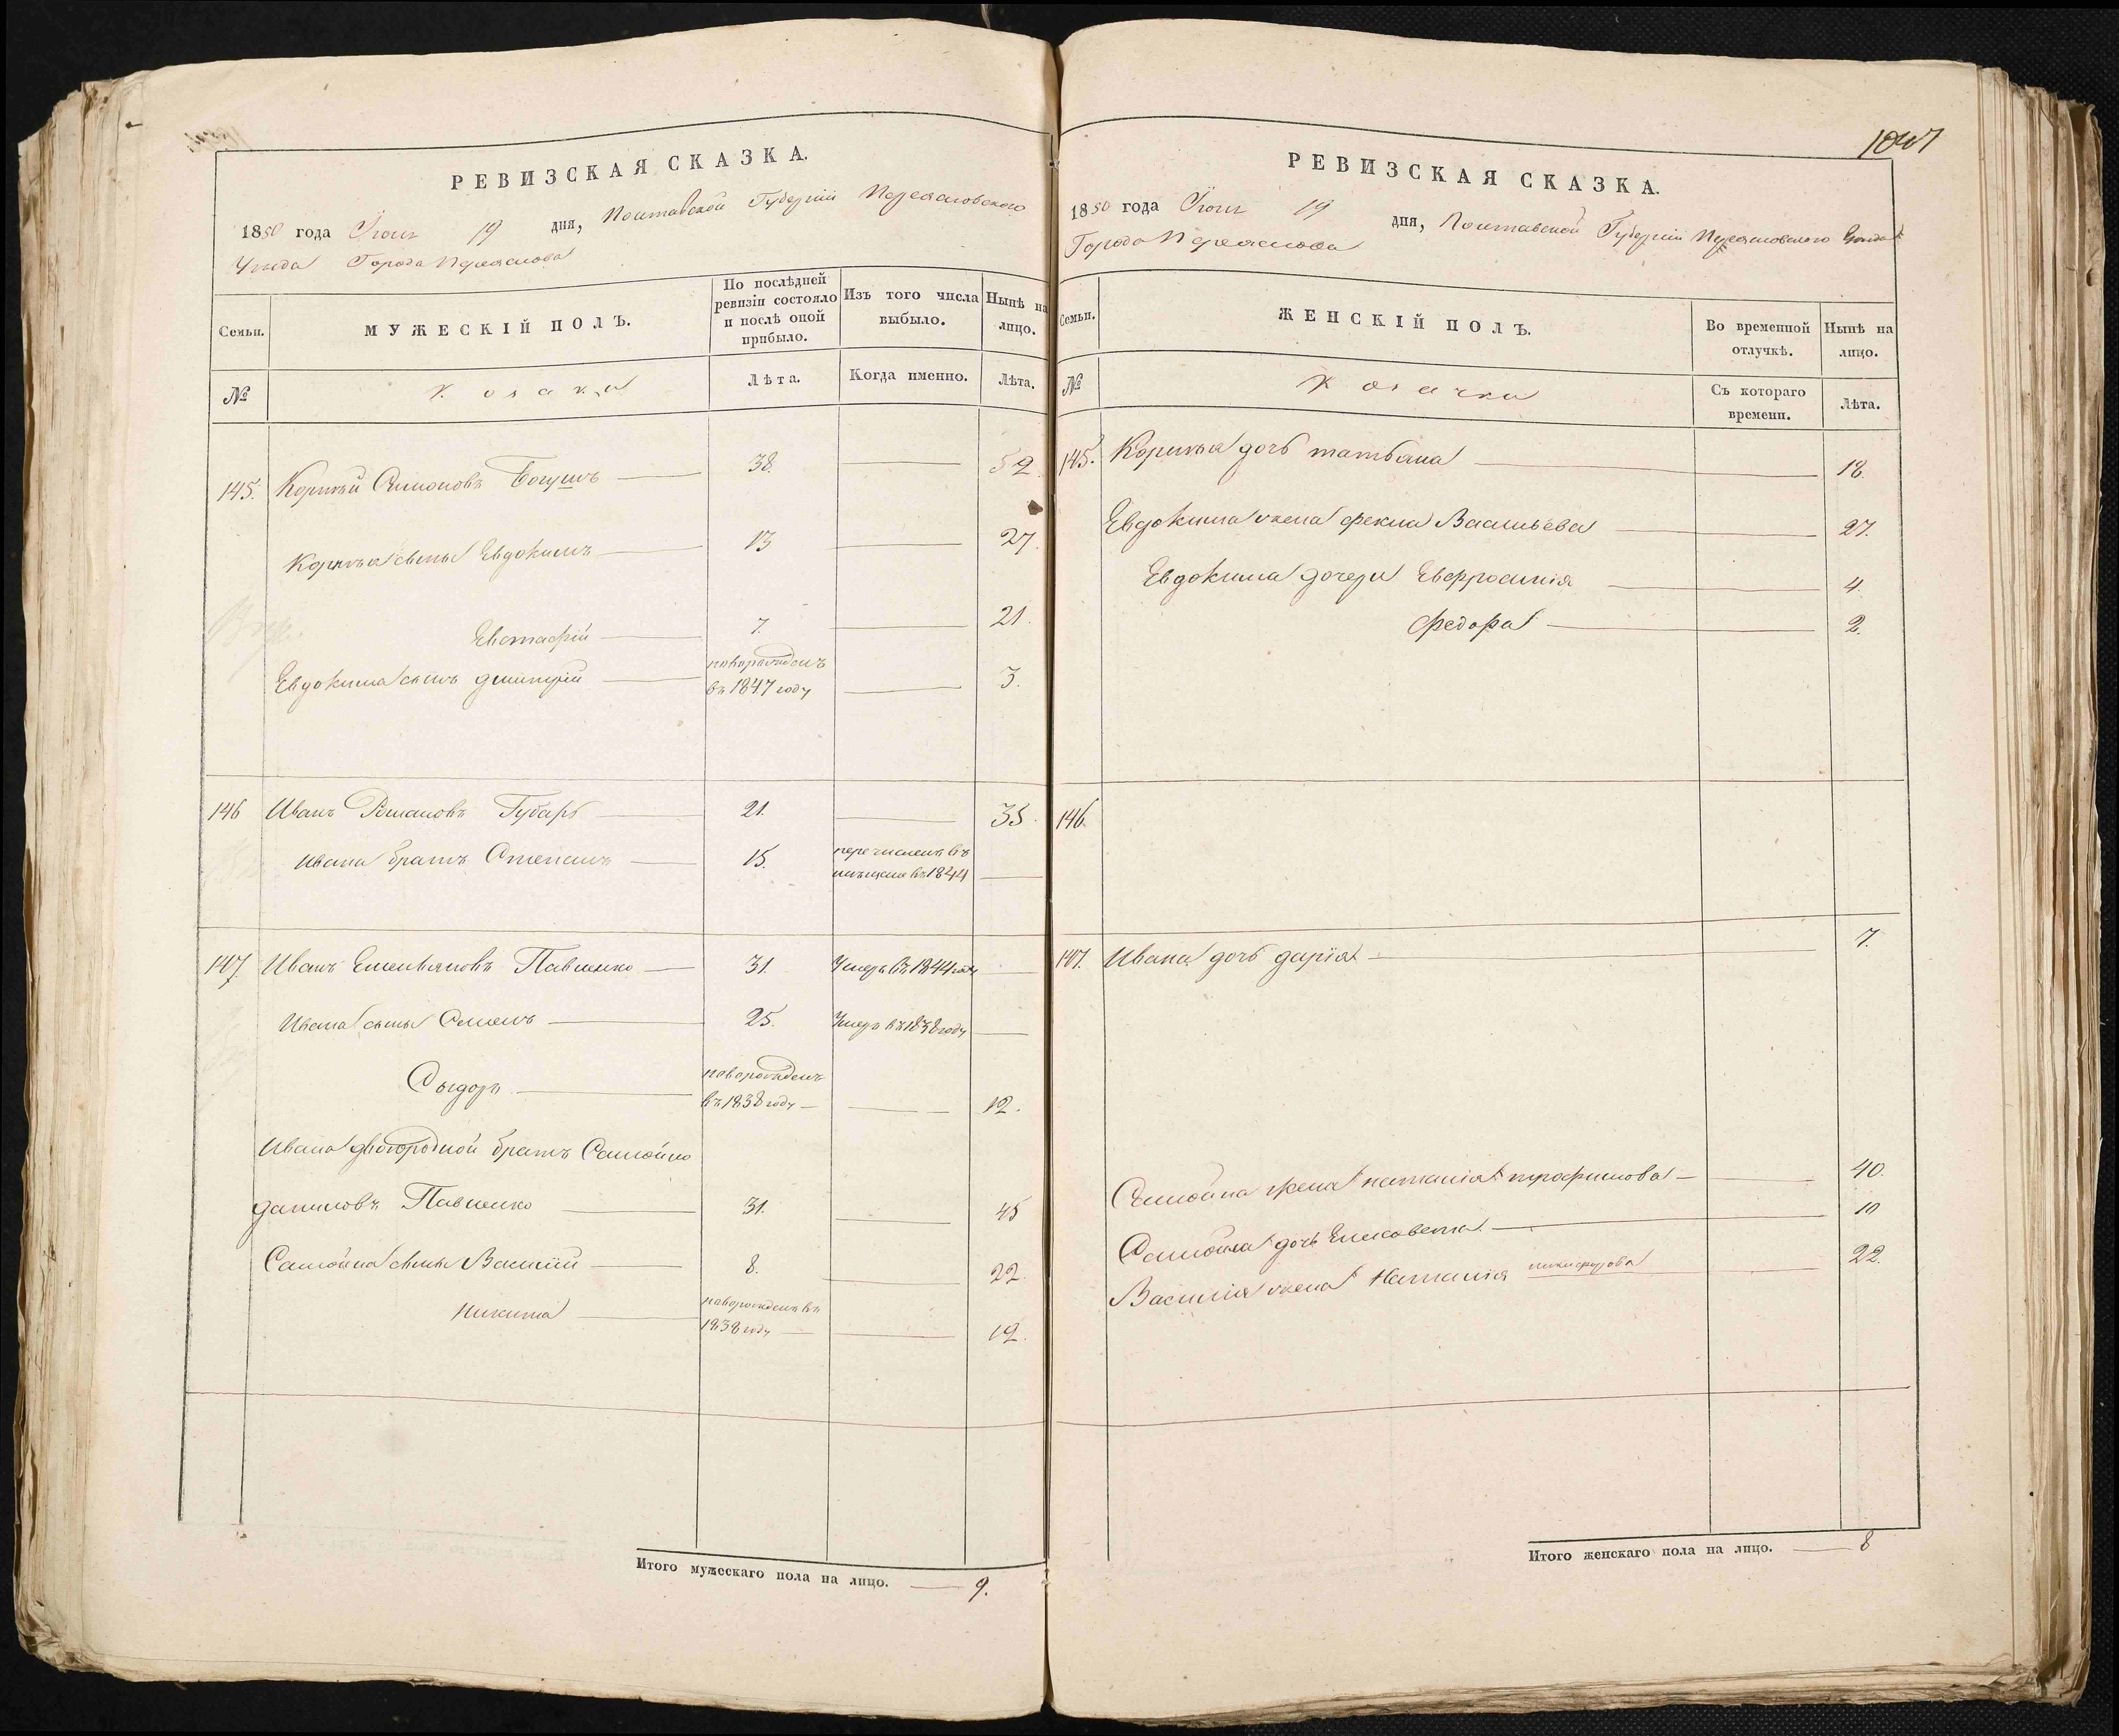 РЕВИЗСКАЯ СКАЗКА.
1850 года Іюня 19 дня, Полтавской Губерніи Переясловского
Уезда Города Переяслова
Семьи.
МУЖЕСКІЙ ПОЛЪ.
По послѣдней ревизіи состояло и послѣ оной прибыло.
Изъ того числа выбыло.
Нынѣ на лицо.
№
Козаки
Лѣта.
Когда именно.
Лѣта.
145. Корнѣй Симоновъ Богушъ 38. 52
Корнѣя сыны Евдокимъ 13 27.
Евстафій 7. 21.
Евдокима сынъ Дмитрій новорожденъ въ 1847 году 3.
146 Иванъ Романовъ Губарь 21. 35.
Ивана братъ Степанъ 15. перечисленъ въ мещане въ 1844
147 Иванъ Емельяновъ Павленко 31. Умеръ въ 1844 году
Ивана сыны Семенъ 25. Умеръ въ 1838 году
Сыдоръ новорожденъ
въ 1838 году 12.
Ивана двоюродной братъ Самойло
Даниловъ Павленко 31. 45
Самойла сыны Василій 8. 22.
Никита новорожденъ въ
1838 году 12.
Итого мужескаго пола на лицо. 9.
1047
РЕВИЗСКАЯ СКАЗКА.
1850 года Іюня 19 дня, Полтавской Губерніи Переясловского Уезда
Города Переяслова
Семьи.
ЖЕНСКІЙ ПОЛЪ.
Во временной отлучкѣ.
Нынѣ на лицо.
№
Козачки
Съ котораго времени.
Лѣта.
145. Корнѣя дочь Татьяна 18.
Евдокима жена Фекла Васильева 27.
Евдокима дочери Евфросинія 4.
Федора 2.
146.
147. Ивана дочь Дарія 7.
Самойла жена Наталія Трофимова 40.
Самойла дочь Елисавета 10
Василія жена Наталія Никифорова 22.
Итого женскаго пола на лицо. 8